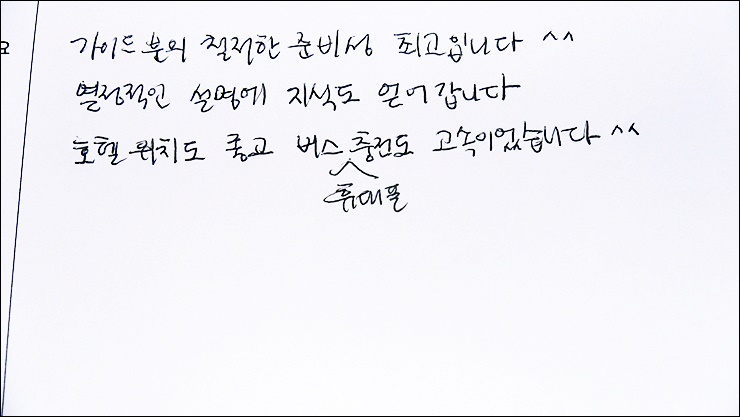 가이드분의 철저한 준비성 최고입니다 ^^
열정적인 설명에 지식도 얻어갑니다
호텔 위치도 좋고 버스 휴대폰 충전도 고속이었습니다 ^^